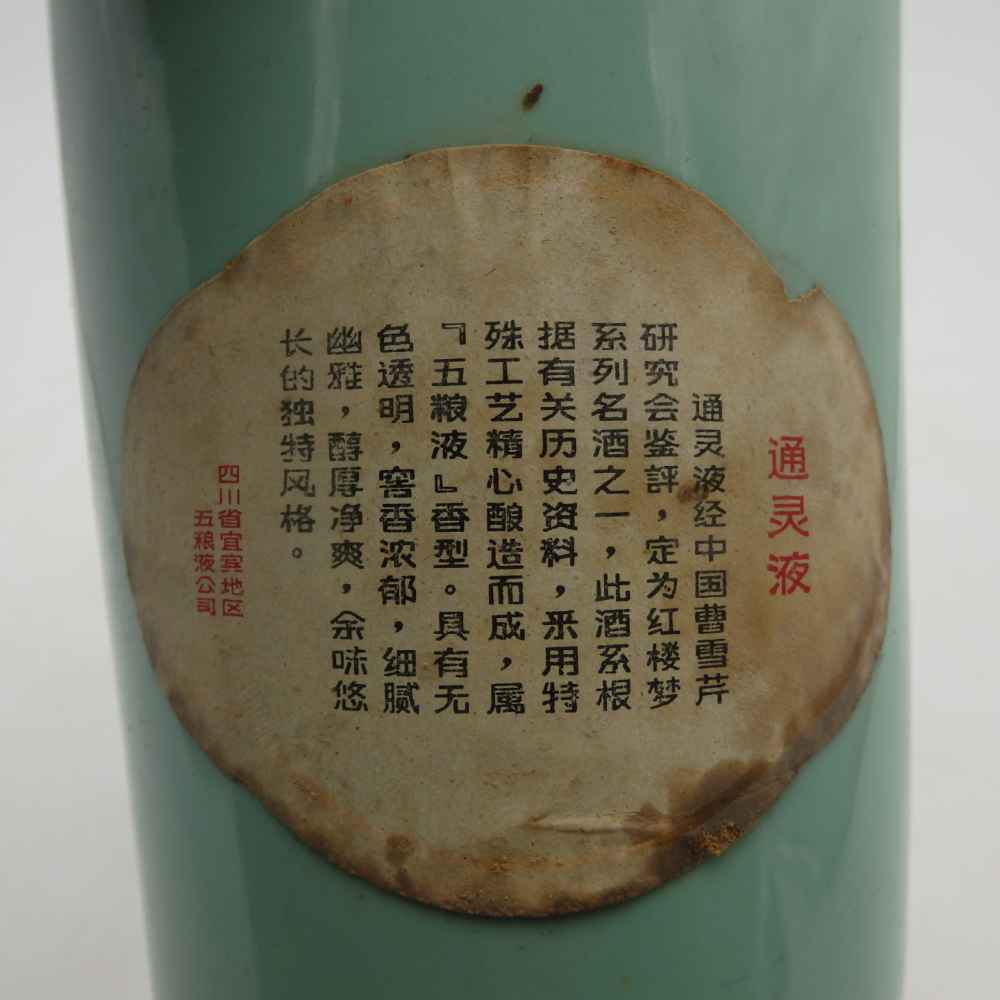 通灵液
通灵液经中国曹雪芹
研究会鉴評，定为红楼梦
系列名酒之一，此酒系根
据有关历史资料，采用特
殊工艺精心酿造而成，属
『五粮液』香型。具有无
色透明，窖香浓郁，细腻
幽雅，醇厚净爽，余味悠
长的独特风格。
四川省宜宾地区
五粮液公司